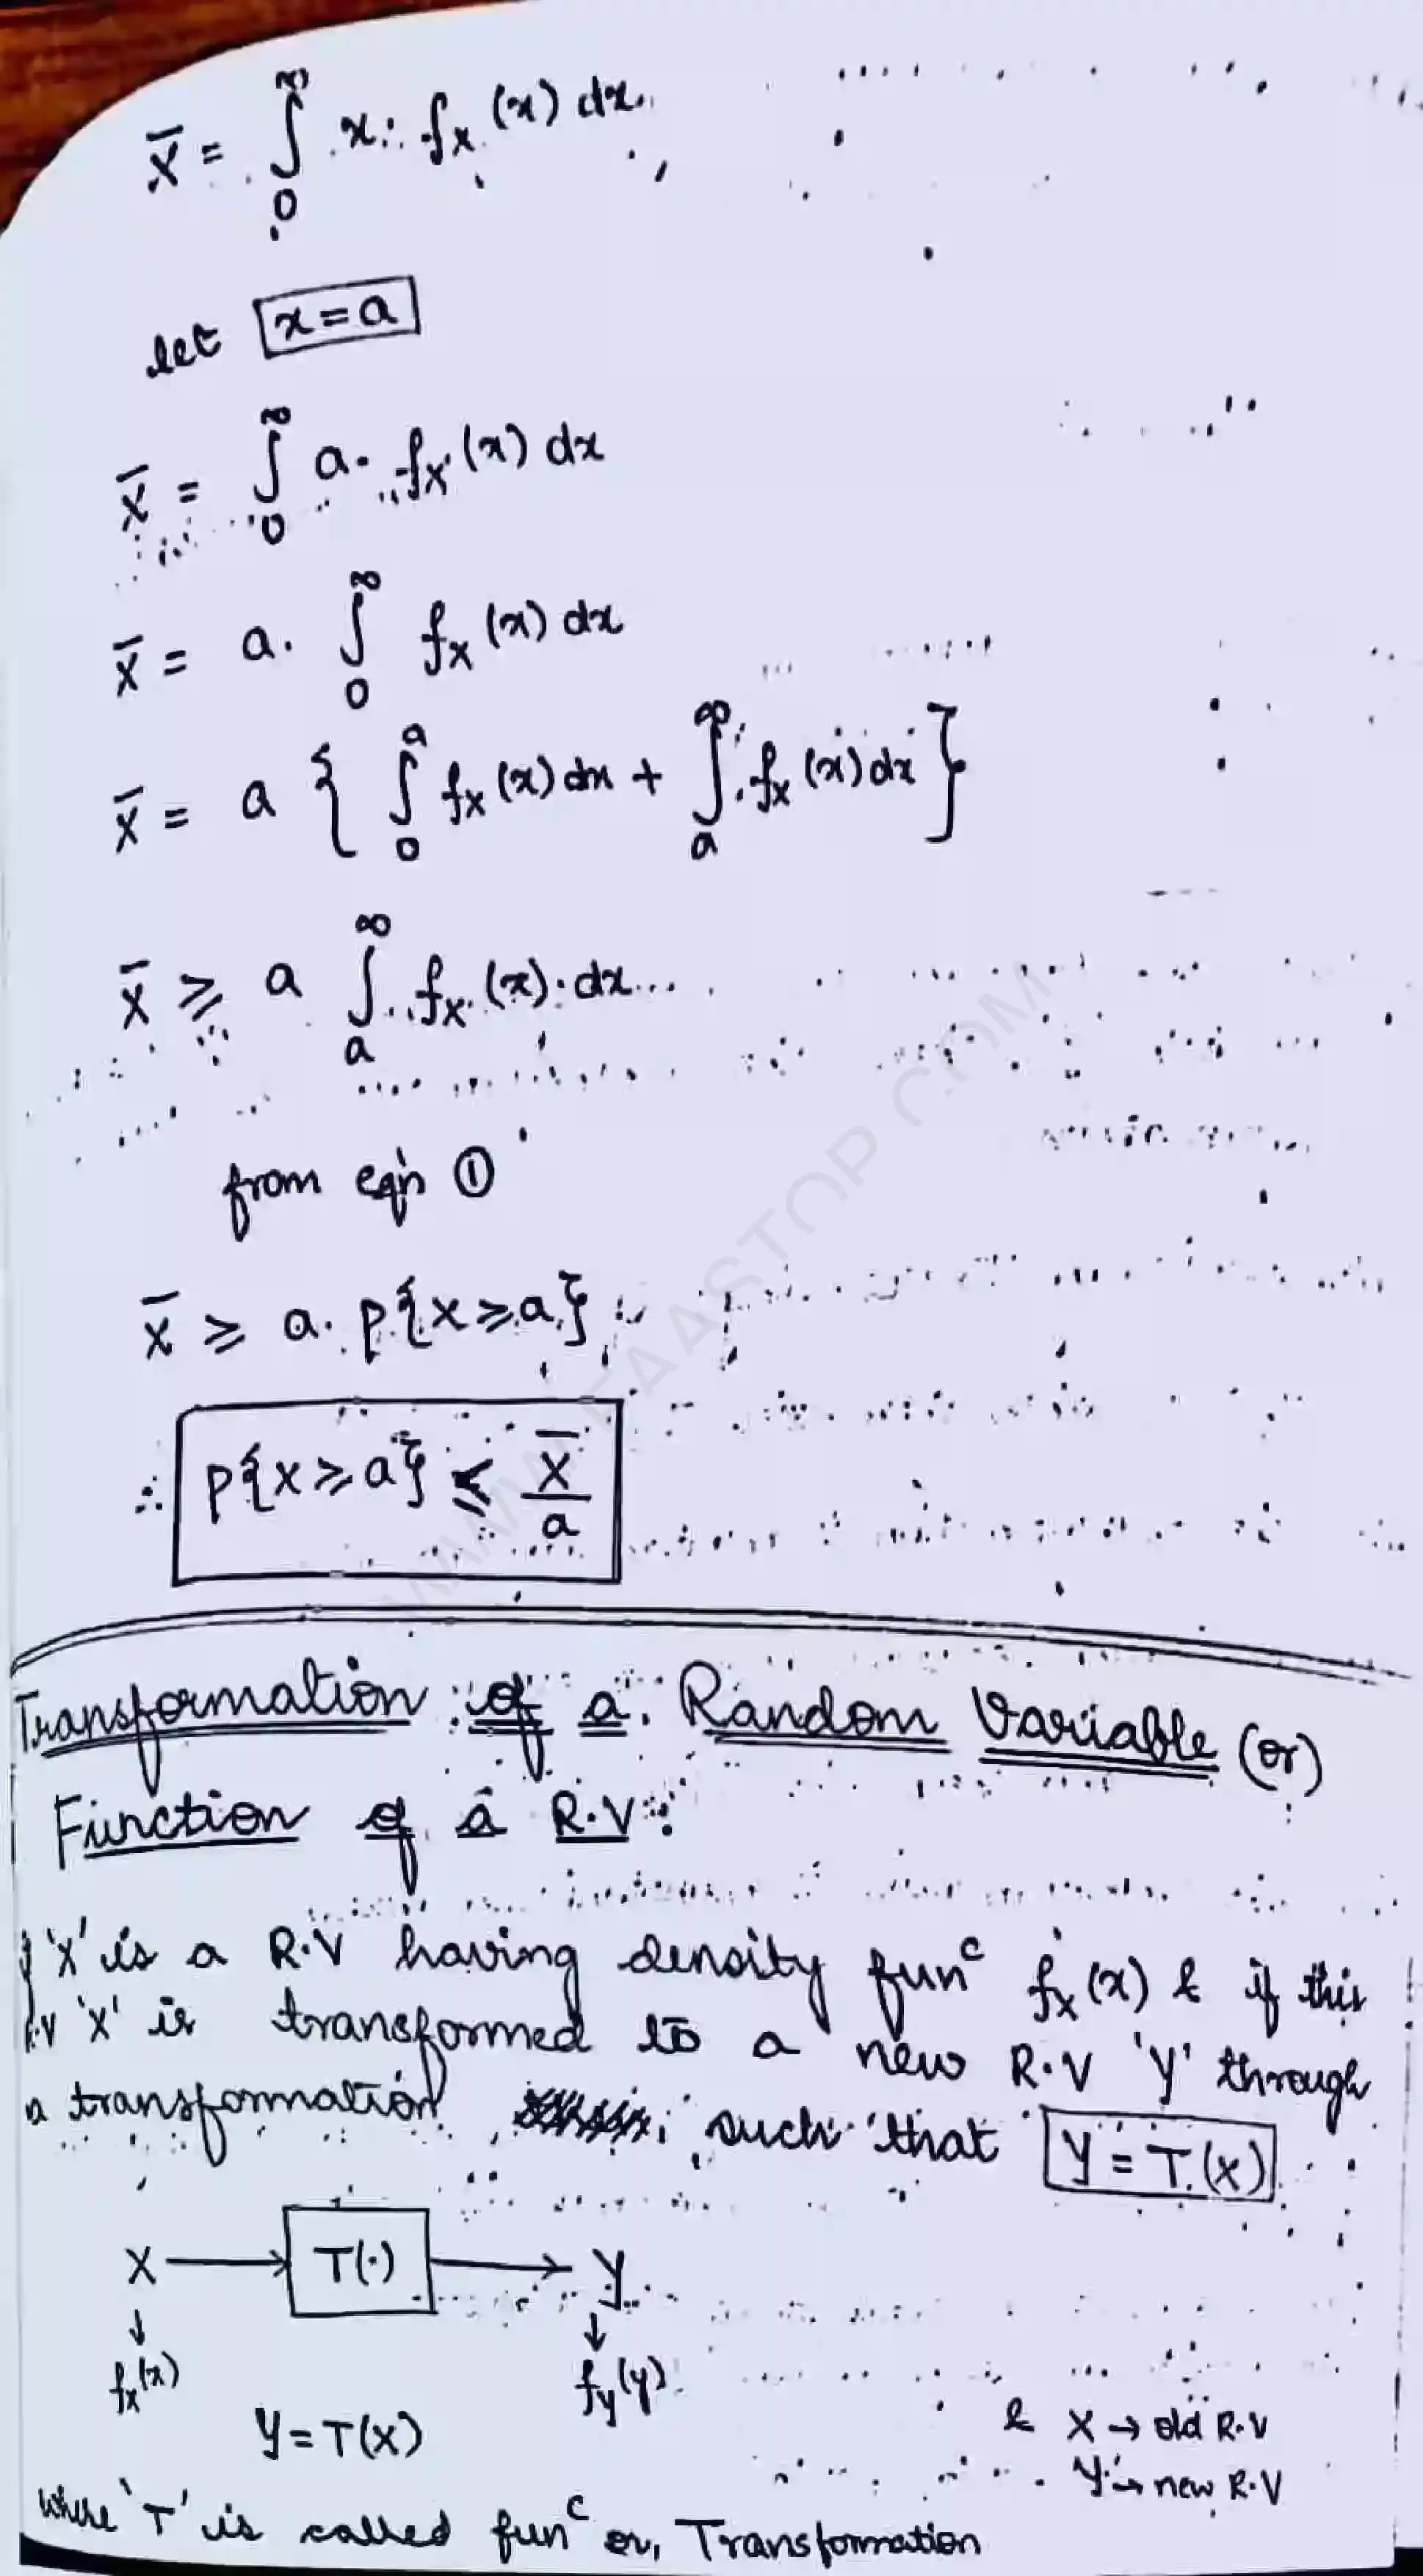 X̄ = ∫₀^∞ x · f_X (x) dx
let x = a
X̄ = ∫₀^∞ a · f_X (x) dx
X̄ = a · ∫₀^∞ f_X (x) dx
X̄ = a { ∫₀^a f_X (x) dx + ∫ₐ^∞ f_X (x) dx }
X̄ ⩾ a ∫ₐ^∞ f_X (x) · dx
from eqn ①
X̄ ⩾ a · P{X ⩾ a}
∴ P{X ⩾ a} ⩽ X̄/a
Transformation of a Random Variable (or)
Function of a R.V :
'X' is a R.V having density funᶜ f_X (x) & if this
R.V 'X' is transformed to a new R.V 'Y' through
a transformation such that Y = T (X)
X → T(·) → Y
↓ ↓
f_X(x) f_Y(y)
Y = T(X) & X → old R.V
Y → new R.V
where 'T' is called funᶜ or, Transformation